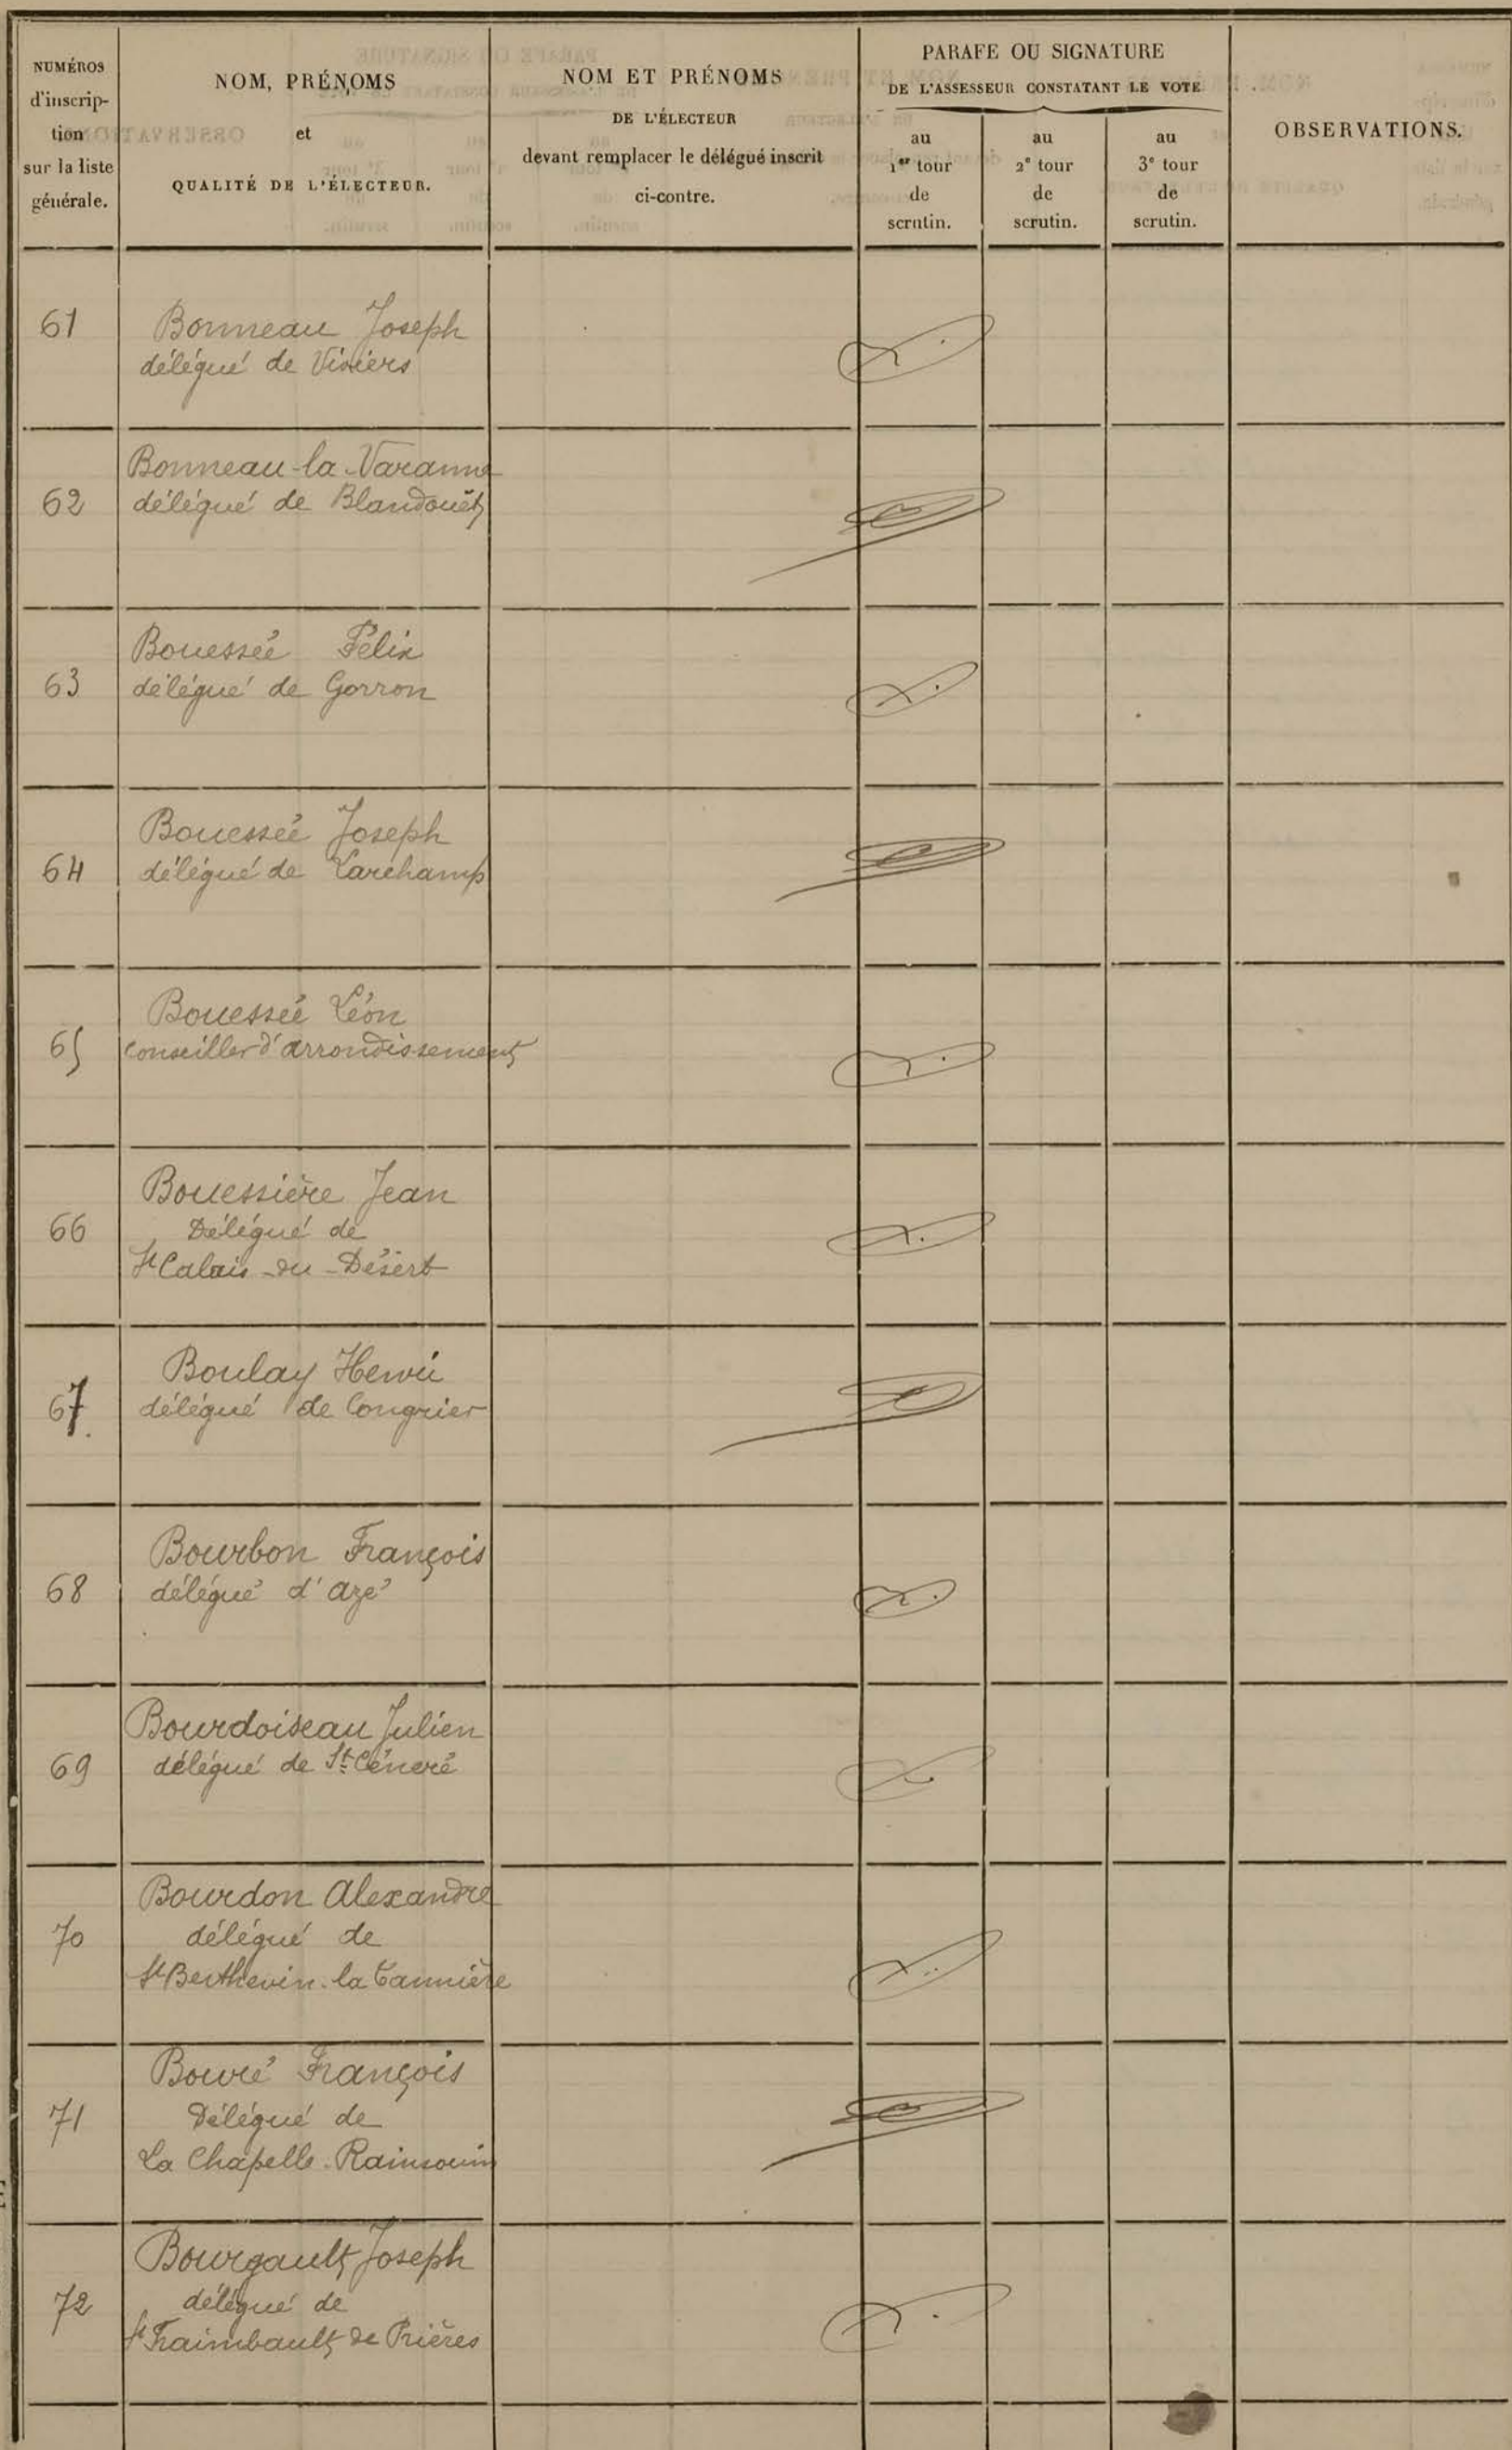 NUMÉROS
d'inscrip-
tion
sur la liste
générale.
NOM, PRÉNOMS
et
QUALITÉ DE L'ÉLECTEUR.
NOM ET PRÉNOMS
DE L'ÉLECTEUR
devant remplacer le délégué inscrit
ci-contre.
PARAFE OU SIGNATURE
DE L'ASSESSEUR CONSTATANT LE VOTE
au
1er tour
de
scrutin.
au
2e tour
de
scrutin.
au
3e tour
de
scrutin.
OBSERVATIONS.
61
Bonneau Joseph
délégué de Viviers
62
Bonneau-la-Varanne
délégué de Blandouët
63
Bouessée Félix
délégué de Gorron
64
Bouessée Joseph
délégué de Larchamp
65
Bouessée Léon
conseiller d'arrondissement
66
Bouessière Jean
Délégué de
St Calais-du-Désert
67
Boulay Henri
délégué de Congrier
68
Bourbon François
délégué d'Azé
69
Bourdoiseau Julien
délégué de St Céneré
70
Bourdon Alexandre
délégué de
St Berthevin-la-Tannière
71
Bouvré François
Délégué de
La Chapelle-Rainsouin
72
Bourgault Joseph
délégué de
St Fraimbault de Prières